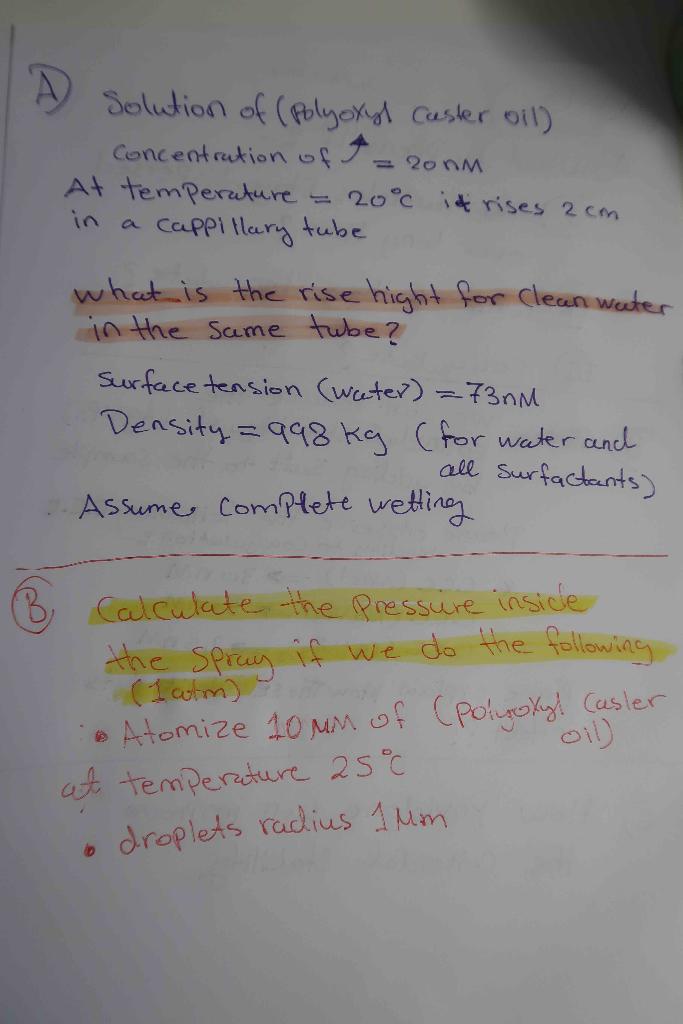 A) Solution of (Polyoxyl Caster oil)
Concentration of ↑ = 20 nM
At temperature = 20°C it rises 2 cm
in a cappillary tube
what is the rise hight for Clean water
in the same tube?
Surface tension (water) = 73nM
Density = 998 Kg (for water and
all surfactants)
Assume complete wetting
B) Calculate the Pressure inside
the spray if we do the following
(1atm)
• Atomize 10 MM of (Polyoxyl Caster
oil)
at temperature 25°C
• droplets radius 1 Mm